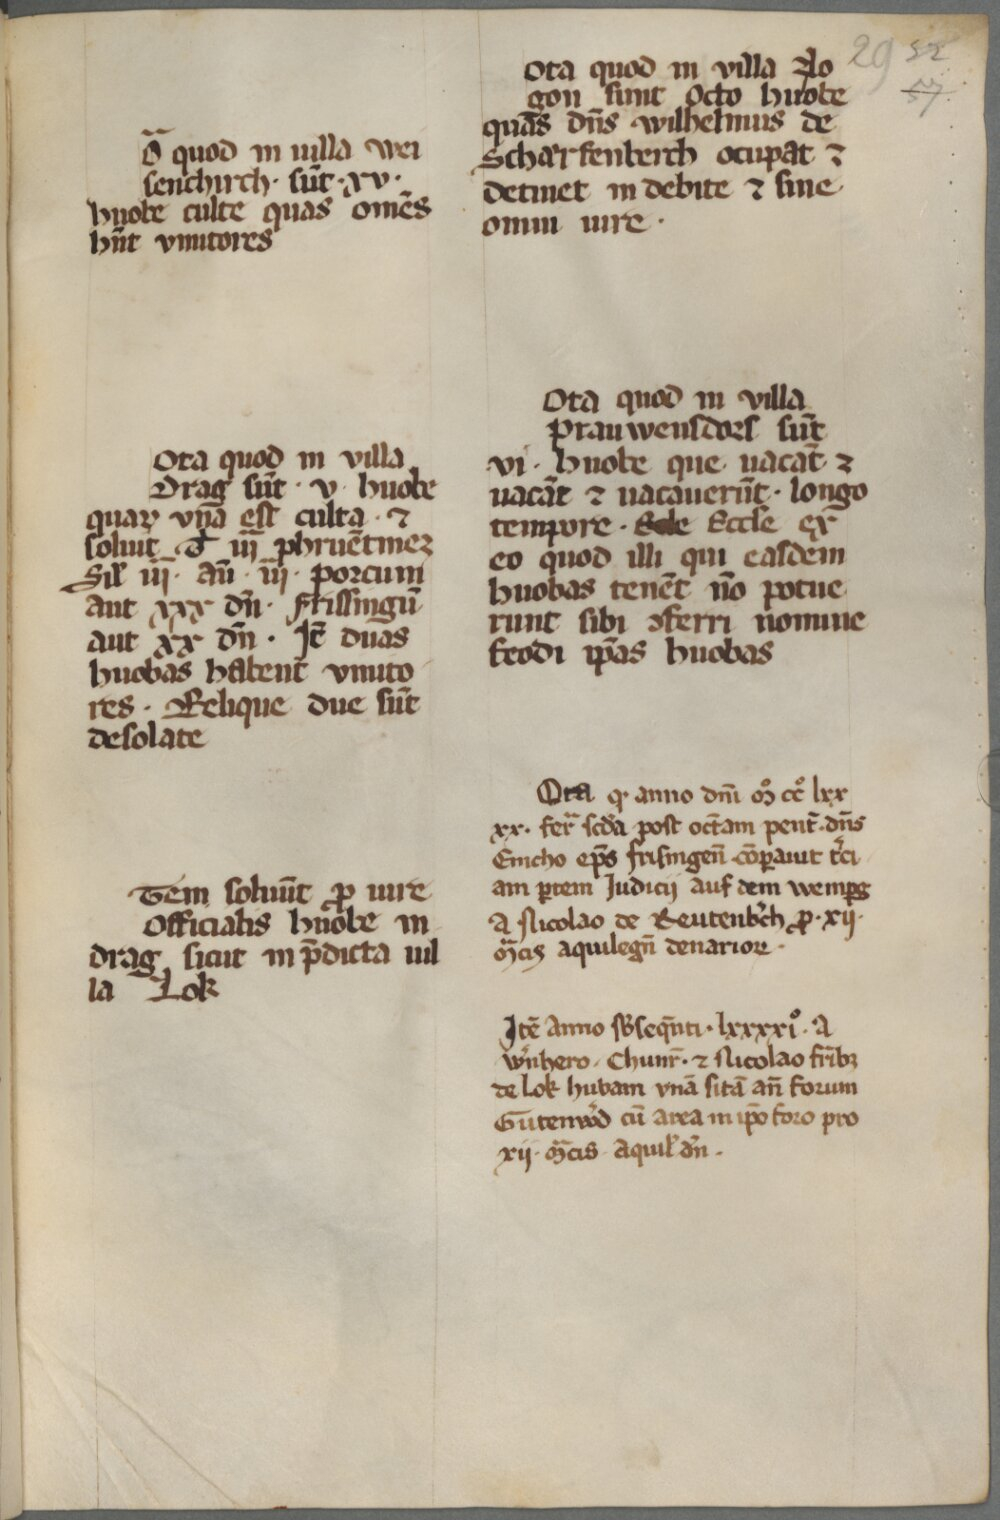 Oͣ quod in uilla wei
senchirch · sūt · xv ·
huobe culte quas om̄es
hn̄t vnitores
Ota quod in villa
Drag sūt · v · huobe
quaꝝ vna est culta · ⁊
soluit T iii phruētmeꝫ
Sil' iii · au · iii · porcum
aut xxx dn̄ · frissingū
aut xx dn̄ · Itē duas
huobas habent vnito
res · Relique due sūt
desolate
Tem soluūt ꝓ iure
officialis huobe in
drag sicut in p̄dicta uil
la Lok
29 52
57
Ota quod in villa Ro
gon sunt Octo huobe
quas dn̄s wilhelmus de
Scharfenberch ocupat ⁊
detinet in debite ⁊ sine
omni iure ·
Ota quod in villa
Prauwensdorf sūt
vi · huobe que uacāt ⁊
uacāt ⁊ uacauerūt · longo
tempore · Eccl̄e ex
eo quod illi qui easdem
huobas tenēt nō potue
runt sibi ꝯferri nomine
feodi ip̄as huobas
Ota qͥ anno dn̄i mͦ ccͦ lxx
xx · fer̄ scd̄a post octam pent̄ · dn̄s
Emcho ep̄s frisingen̄ ꝯparauit tꝰci
am ꝑtem Judicij auf dem wemꝑg
A Nicolao de Reutenbꝰch ꝓ · xij ·
mͣcis aquilegn̄ denarioꝝ ·
Itē Anno sb̄seqn̄ti · lxxxxiͦ · A
wꝰnhero · Chunr̄ · ⁊ Nicolao fr̄ibꝫ
de lok hubam vnā sitā an̄ forum
Gutenwꝰd cū area in ip̄o foro pro
xij · mͣcis · Aquil' dn̄ ·